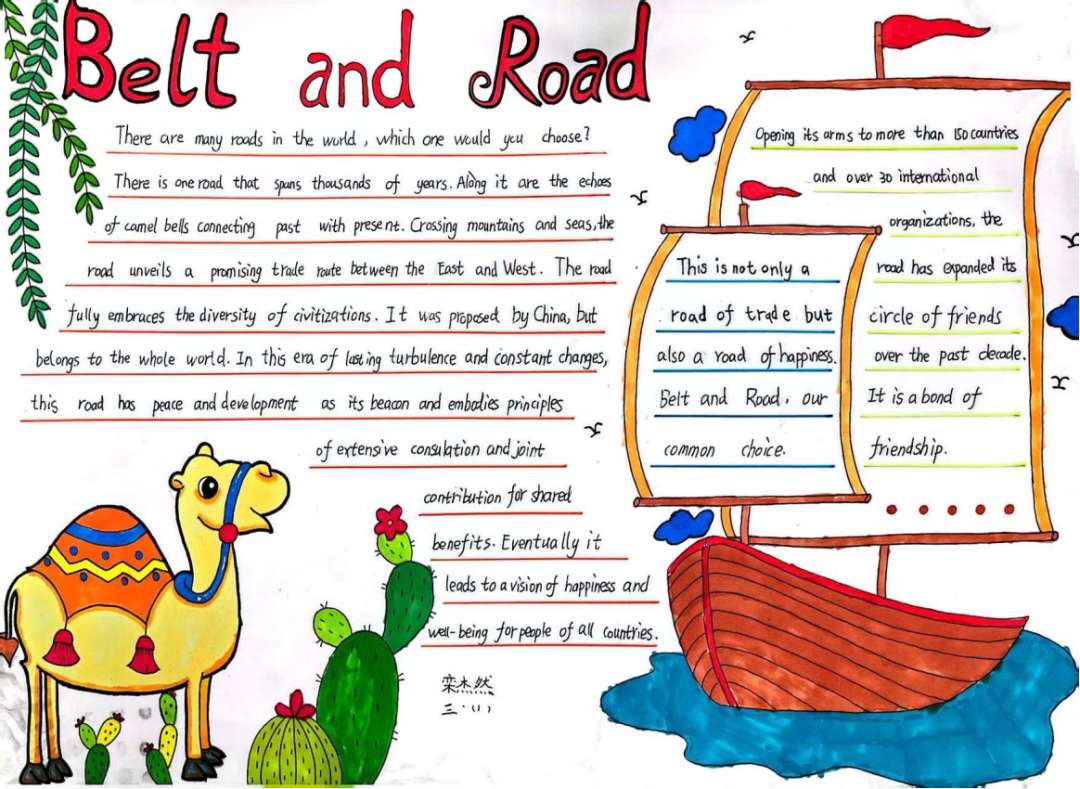 Belt and Road
There are many roads in the world, which one would you choose?
There is one road that spans thousands of years. Along it are the echoes
of camel bells connecting past with present. Crossing mountains and seas, the
road unveils a promising trade route between the East and West. The road
fully embraces the diversity of civitizations. It was proposed by China, but
belongs to the whole world. In this era of lasting turbulence and constant changes,
this road has peace and development as its beacon and embodies principles
of extensive consulation and joint
contribution for shared
benefits. Eventually it
leads to a vision of happiness and
well-being for people of all countries.
栾杰然
三·(1)
This is not only a
road of trade but
also a road of happiness.
Belt and Road, our
common choice.
Opening its arms to more than 150 countries
and over 30 international
organizations, the
road has expanded its
circle of friends
over the past decade.
It is a bond of
friendship.